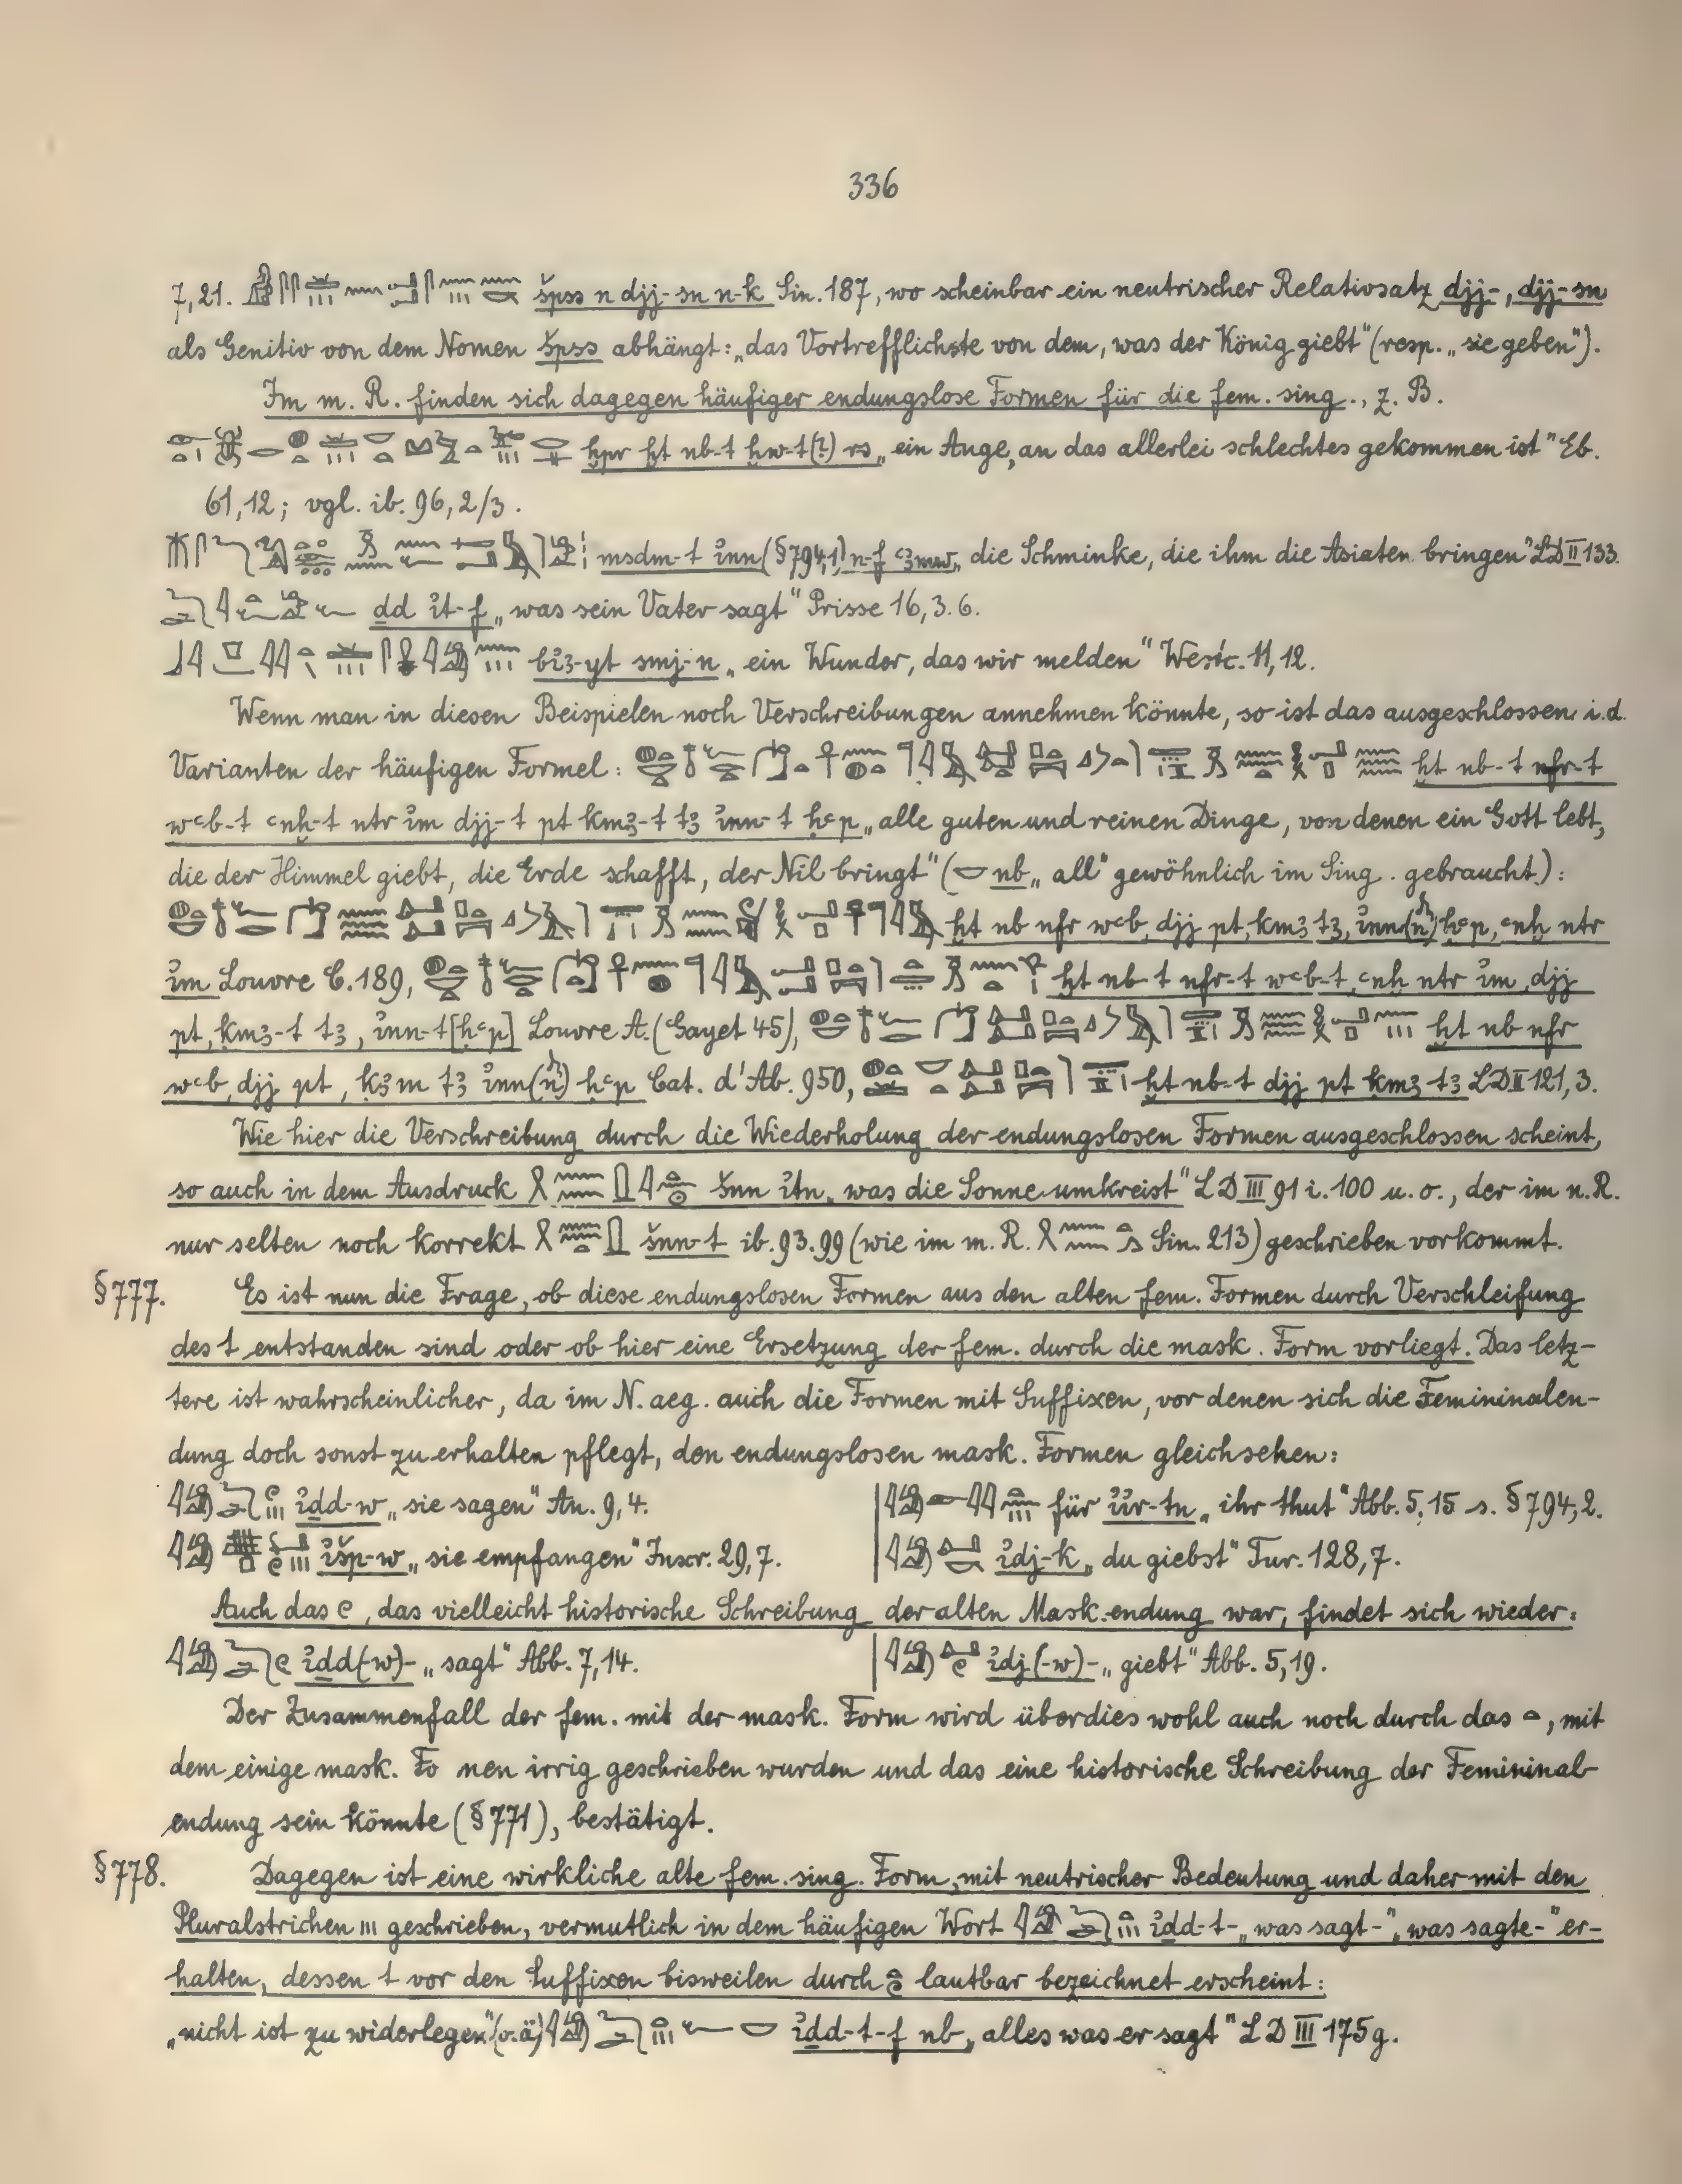 336
7,21. špss n djj-sn n-k Sin. 187, wo scheinbar ein neutrischer Relativsatz djj-, djj-sn
als Genitiv von dem Nomen špss abhängt: „das Vortrefflichste von dem, was der König giebt" (resp. „sie geben").
Im m. R. finden sich dagegen häufiger endungslose Formen für die fem. sing., z. B.
ḫpr ḫt nb-t ḥw-t(?) rs „ein Auge, an das allerlei schlechtes gekommen ist" Eb.
61,12; vgl. ib. 96, 2/3.
msdm-t ỉnn (§ 794,1) n-f ꜥꜣmw „die Schminke, die ihm die Asiaten bringen" LD II 133.
ḏd ỉt-f „was sein Vater sagt" Prisse 16, 3. 6.
bỉꜣ-yt smj-n „ein Wunder, das wir melden" Westc. 11, 12.
Wenn man in diesen Beispielen noch Verschreibungen annehmen könnte, so ist das ausgeschlossen i. d.
Varianten der häufigen Formel: ḫt nb-t nfr-t
wꜥb-t ꜥnḫ-t nṯr ỉm djj-t pt ḳmꜣ-t tꜣ ỉnn-t ḥꜥp „alle guten und reinen Dinge, von denen ein Gott lebt,
die der Himmel giebt, die Erde schafft, der Nil bringt" (𓎟 nb „all" gewöhnlich im Sing. gebraucht):
ḫt nb nfr wꜥb, djj pt, ḳmꜣ tꜣ, ỉnn(n) ḥꜥp, ꜥnḫ nṯr
ỉm Louvre C. 189, ḫt nb-t nfr-t wꜥb-t, ꜥnḫ nṯr ỉm, djj
pt, ḳmꜣ-t tꜣ, ỉnn-t [ḥꜥp] Louvre A. (Gayet 45), ḫt nb nfr
wꜥb, djj pt, ḳꜣm tꜣ ỉnn(n) ḥꜥp Cat. d'Ab. 950, ḫt nb-t djj pt ḳmꜣ tꜣ LD II 121, 3.
Wie hier die Verschreibung durch die Wiederholung der endungslosen Formen ausgeschlossen scheint,
so auch in dem Ausdruck šnn ỉtn „was die Sonne umkreist" LD III 91 i. 100 u. o., der im n. R.
nur selten noch korrekt šnn-t ib. 93. 99 (wie im m. R. Sin. 213) geschrieben vorkommt.
§ 777. Es ist nun die Frage, ob diese endungslosen Formen aus den alten fem. Formen durch Verschleifung
des t entstanden sind oder ob hier eine Ersetzung der fem. durch die mask. Form vorliegt. Das letz-
tere ist wahrscheinlicher, da im N. aeg. auch die Formen mit Suffixen, vor denen sich die Femininalen-
dung doch sonst zu erhalten pflegt, den endungslosen mask. Formen gleichsehen:
ỉḏd-w „sie sagen" An. 9, 4. | für ỉỉr-tn „ihr thut" Abb. 5, 15 s. § 794, 2.
ỉšp-w „sie empfangen" Inscr. 29, 7. | ỉdj-k „du giebst" Tur. 128, 7.
Auch das 𓏲, das vielleicht historische Schreibung der alten Mask. endung war, findet sich wieder:
ỉḏd(-w)- „sagt" Abb. 7, 14. | ỉdj(-w)- „giebt" Abb. 5, 19.
Der Zusammenfall der fem. mit der mask. Form wird überdies wohl auch noch durch das 𓏏, mit
dem einige mask. Fo nen irrig geschrieben wurden und das eine historische Schreibung der Femininal-
endung sein könnte (§ 771), bestätigt.
§ 778. Dagegen ist eine wirkliche alte fem. sing. Form, mit neutrischer Bedeutung und daher mit den
Pluralstrichen 𓏥 geschrieben, vermutlich in dem häufigen Wort ỉḏd-t- „was sagt-", „was sagte-" er-
halten, dessen t vor den Suffixen bisweilen durch lautbar bezeichnet erscheint:
„nicht ist zu widerlegen" (o. ä) ỉḏd-t-f nb „alles was er sagt" LD III 175 g.